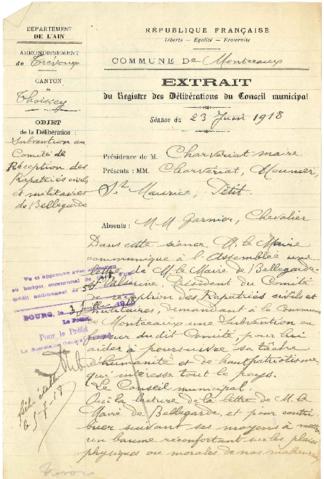 DÉPARTEMENT
DE L'AIN
ARRONDISSEMENT
de Trévoux
CANTON
de Thoissey
OBJET
de la Délibération
Subvention au
Comité de
Réception des
Rapatriés civils
et militaires
de Bellegarde
RÉPUBLIQUE FRANÇAISE
Liberté - Égalité - Fraternité
COMMUNE De Montceaux
EXTRAIT
du Registre des Délibérations du Conseil municipal
Séance du 23 Juin 1918
Présidence de M. Charvériat maire
Présents : MM. Charvériat, Meunier,
St Maurice, Petit.
Absents : MM Garnier, Chevalier
Dans cette séance, M. le Maire
communique à l'Assemblée une
lettre de M. le Maire de Bellegarde-
Valserine, Président du Comité
de réception des Rapatriés civils et
militaires, demandant à la Commune
de Montceaux une Subvention au
profit du dit Comité, pour lui
aider à poursuivre sa tâche
d'humanité et de haut patriotisme
qui intéresse tout le pays.
Le Conseil municipal,
Ouï la lecture de la lettre de M. le
Maire de Bellegarde, et pour contri-
buer suivant ses moyens à mettre
un baume réconfortant sur les plaies
physiques ou morales de nos malheureux
Vu et approuvé
BOURG, le
Le Préfet,
Pour le Préfet